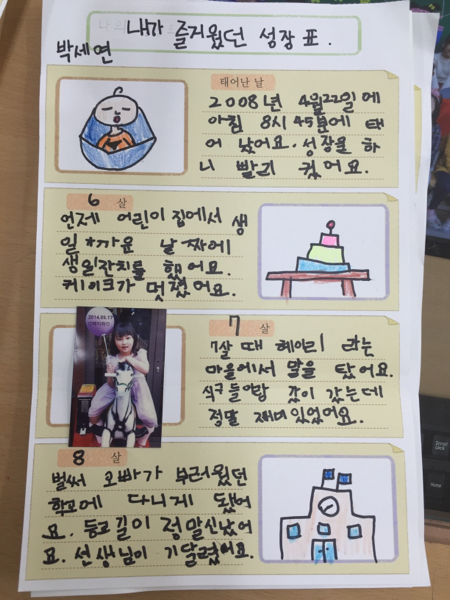 내가 즐거웠던 성장표.
박세연
태어난 날
2008년 4월22일에
아침 8시 45분에 태
어 났어요. 성장을 하
니 빨리 컸어요.
6 살
언제 어린이 집에서 생
일 가까운 날짜에
생일잔치를 했어요.
케이크가 멋졌어요.
7 살
2014.05.17
7살 때 헤이리 라는
마을에서 말을 탔어요.
식구들이랑 같이 갔는데
정말 재미있었어요.
8 살
벌써 오빠가 부러웠던
학교에 다니게 됐어
요. 등교길이 정말신났어
요. 선생님이 기달렸어요.
Scroll
Lock
Home